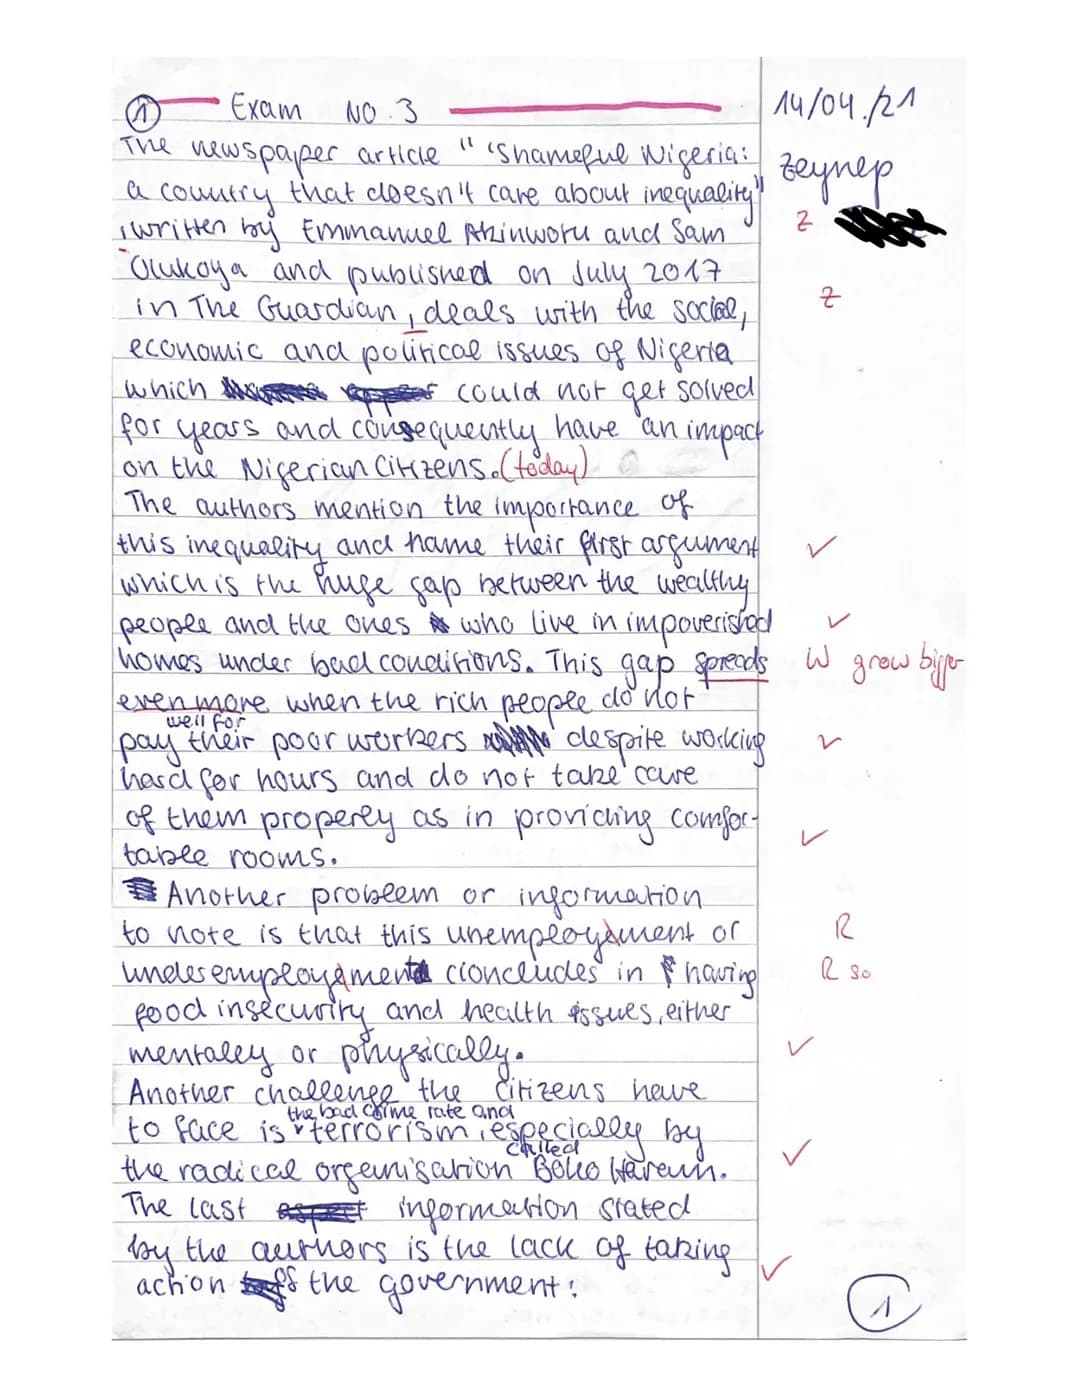 1 Exam NO.3 14/04/21
The newspaper article "'Shameful Nigeria: Zeynep
a country that doesn't care about inequality"
, written by Emmanuel Akinwotu and Sam Z
Olukoya and published on July 2017 Z
in The Guardian, deals with the social,
economic and political issues of Nigeria
which could not get solved
for years and consequently have an impact
on the Nigerian Citizens. (today)
The authors mention the importance of
this inequality and name their first argument ✓
which is the huge gap between the wealthy
people and the ones who live in impoverished ✓
homes under bad conditions. This gap spreads W grow bigger
even more when the rich people do not
well for
pay their poor workers despite working ✓
hard for hours and do not take care
of them properly as in providing comfor- ✓
table rooms.
Another problem or information
to note is that this unemployement or R
underemployement concludes in having R so
food insecurity and health issues, either
mentally or physically. ✓
Another challenge the citizens have
the bad crime rate and
to face is terrorism, especially by
called ✓
the radical organisation Boko Haram.
The last information stated
by the authors is the lack of taking ✓
action of the government: 1